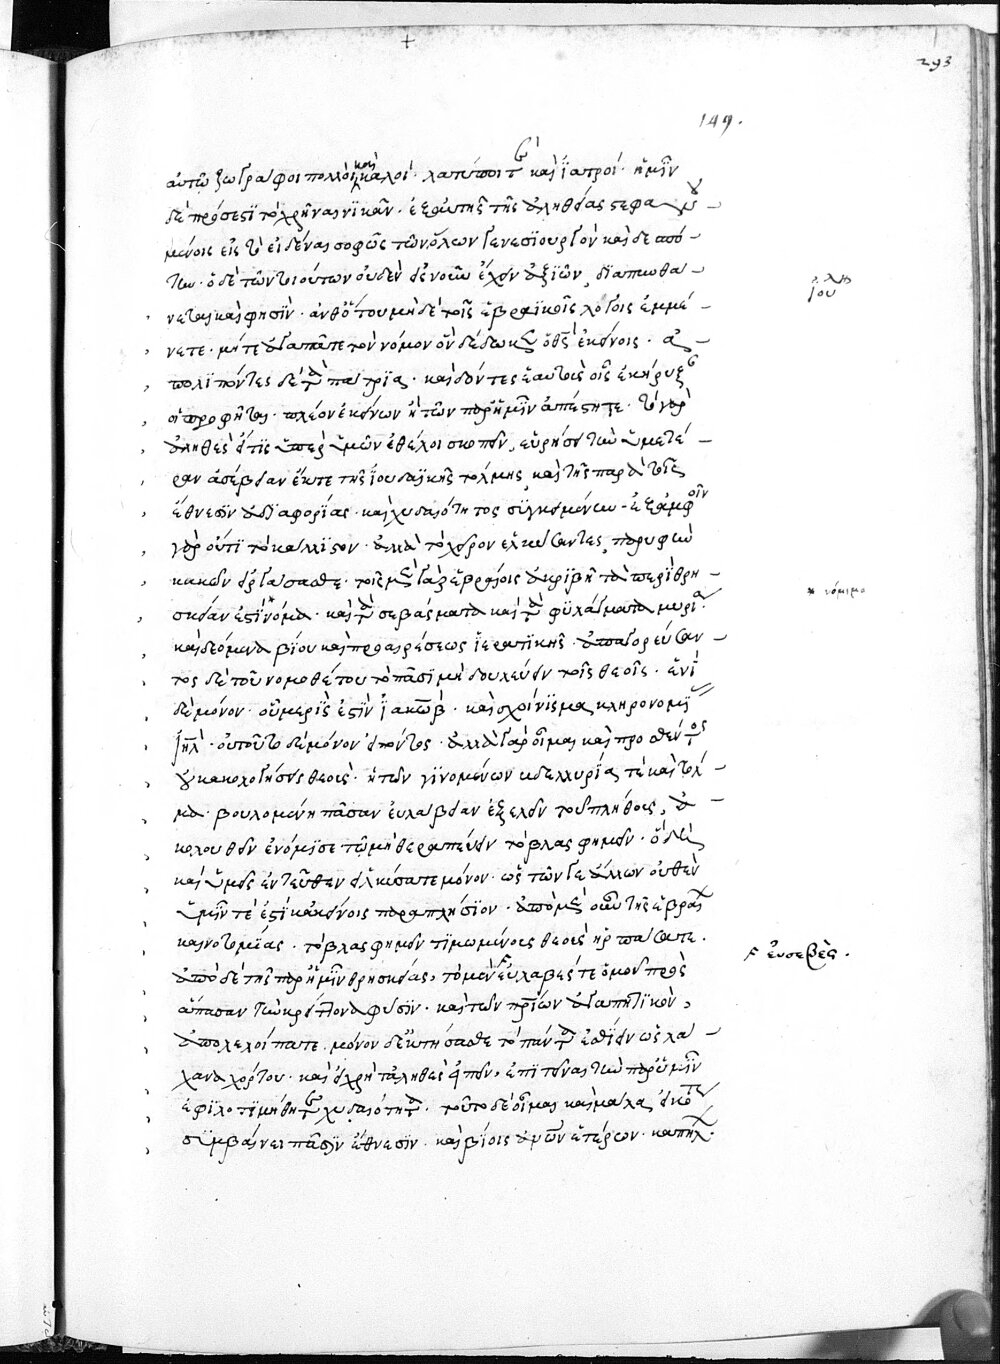 293
149.
αὐτῷ ζωγράφοι πολλοὶ καὶ καλοὶ. λαπέποι τ καὶ ἰατροί. ἡμῖν
δὲ πρόσεστι τὸ χρῆναι νικᾶν. ἐξ αὐτῆς τῆς ἀληθείας στεφανου
μένοις εἰς τὸ εἰδέναι σοφῶς τῶν ὅλων γενεσιουργὸν καὶ δεσπό
την. ὁ δὲ τῶν τοιούτων οὐδὲν εἰς νοῦν ἔχειν ἀξιῶν, διαπυνθά
νεται καὶ φησὶν. ἀνθ' ὅτου μηδὲ τοῖς ἑβραϊκοῖς λόγοις ἐμμέ
νετε. μήτε ἀγαπᾶτε τὸν νόμον ὃν δέδωκεν ὁ θεὸς ἐκείνοις. ἀ
πολιπόντες δὲ τὰ πάτρια. καὶ δόντες ἑαυτοὺς οἷς ἐκήρυξαν
οἱ προφῆται. πλέον ἐκείνων ἢ τῶν παρ' ἡμῖν ἀπέστητε. τὸ γὰρ
ἀληθὲς εἴ τις ὑπὲρ ὑμῶν ἐθέλοι σκοπεῖν, εὑρήσει τὴν ὑμετέ
ραν ἀσέβειαν ἔκ τε τῆς ἰουδαϊκῆς τόλμης, καὶ τῆς παρὰ τοῖς
ἔθνεσιν ἀδιαφορίας. καὶ χυδαιότητος συγκειμένην. ἐξ ἀμφοῖν
γὰρ οὔτι τὸ κάλλιστον. ἀλλὰ τὸ χεῖρον ἑλκύσαντες, παρυφὴν
κακῶν εἰργάσασθε. τοῖς μὲν γὰρ ἑβραίοις ἀκριβῆ τὰ περὶ θρη
σκείαν ἐστὶ νόμα. καὶ τὰ σεβάσματα καὶ τὰ φυλάγματα μυρία.
καὶ δεόμενα βίου καὶ προαιρέσεως ἱερατικῆς. ἀπαγορεύσαν
τος δὲ τοῦ νομοθέτου τὸ πᾶσι μὴ δουλεύειν τοῖς θεοῖς. ἑνὶ
δὲ μόνον. οὗ μερίς ἐστὶν ἰακὼβ. καὶ σχοίνισμα κληρονομίας
ἰηλ. οὐ τοῦτο δὲ μόνον εἰπόντος. ἀλλὰ γὰρ οἶμαι καὶ προσθέντος
οὐ κακολογήσεις θεοὺς. ἡ τῶν γινομένων βδελλυρία τὲ καὶ τόλ
μα. βουλομένη πᾶσαν εὐλάβειαν ἐξελεῖν τοῦ πλήθους, ἀ
κολουθεῖν ἐνόμισε τῷ μὴ θεραπεύειν τὸ βλασφημεῖν. ὃ δὴ
καὶ ὑμεῖς ἐντεῦθεν εἱλκύσατε μόνον. ὡς τῶν γε ἄλλων οὐθὲν
ὑμῖν τέ ἐστι κἀκείνοις παραπλήσιον. ἀπὸ μὲν οὖν τῆς ἑβραίων
καινοτομίας. τὸ βλασφημεῖν τιμωμένους θεοὺς ἡρπάσατε.
ἀπὸ δὲ τῆς παρ' ἡμῖν θρησκείας, τὸ μὲν εὐλαβές τε ὁμοῦ πρὸς
ἅπασαν τὴν κρείττονα φύσιν. καὶ τῶν πατρίων ἀγαπητικὸν,
ἀπολελοίπατε. μόνον δ' ἐκτήσασθε τὸ πάντα ἐσθίειν ὡς λά
χανα χόρτου. καὶ εἰ χρὴ τἀληθὲς εἰπεῖν, ἐπιτεῖναι τὴν παρ' ὑμῖν
ἐφιλοτιμήθητε χυδαιότητα. τοῦτο δὲ οἶμαι καὶ μάλα εἰκότως
συμβαίνει πᾶσιν ἔθνεσιν. καὶ βίοις ἀνῶν ἑτέρων. καπηλ.
ἰου
* νόμιμα
εὐσεβὲς.